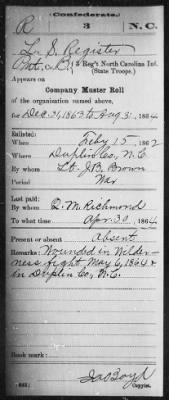 (Confederate.)
R 3 N.C.
L. S. Register
Pvt., Co. B, 3 Reg't North Carolina Inf.
(State Troops.)
Appears on
Company Muster Roll
of the organization named above,
for Dec 31, 1863 to Aug 31, 1864
Enlisted:
When Feby 15, 1862
Where Duplin Co, N.C
By whom Lt. J.B. Brown
Period War
Last paid:
By whom Q. M. Richmond
To what time Apr. 30, 1864
Present or absent Absent
Remarks: Wounded in Wilder-
ness fight May 6, 1864 &
in Duplin Co, N.C.
Book mark:
Jno Boyd
Copyist.